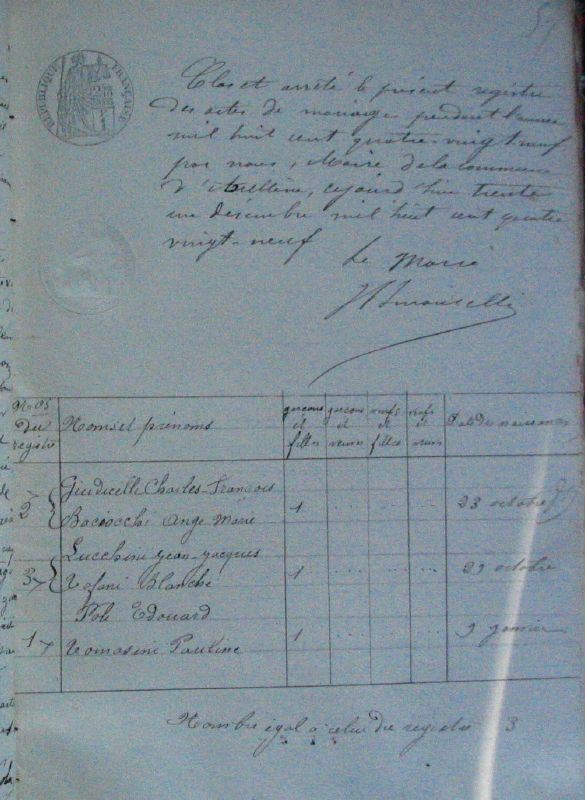 57
RÉPUBLIQUE FRANÇAISE
Clos et arrêté le présent registre
des actes de mariages pendant l'année
mil huit cent quatre vingt neuf
par nous, Maire de la commune
d' cejourd'hui trente
un décembre mil huit cent quatre
vingt-neuf
Le Maire
Nos du registre Noms et prénoms garçons et filles garçons et veuves veufs et filles veufs et veuves Date des
2 Giudicelli Charles-François
Baciocchi Ange Marie 1 23 octobre
3 Lucchini Jean-Jacques
Tofani Blanche 1 29 octobre
Poli Edouard
1 Tomasini Pauline 1 9 janvier
Nombre égal à celui du registre 3